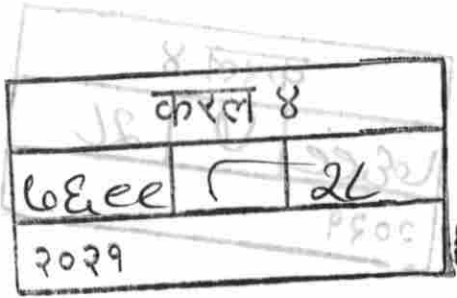 करल ४
७६९९ ८ २८
२०२१